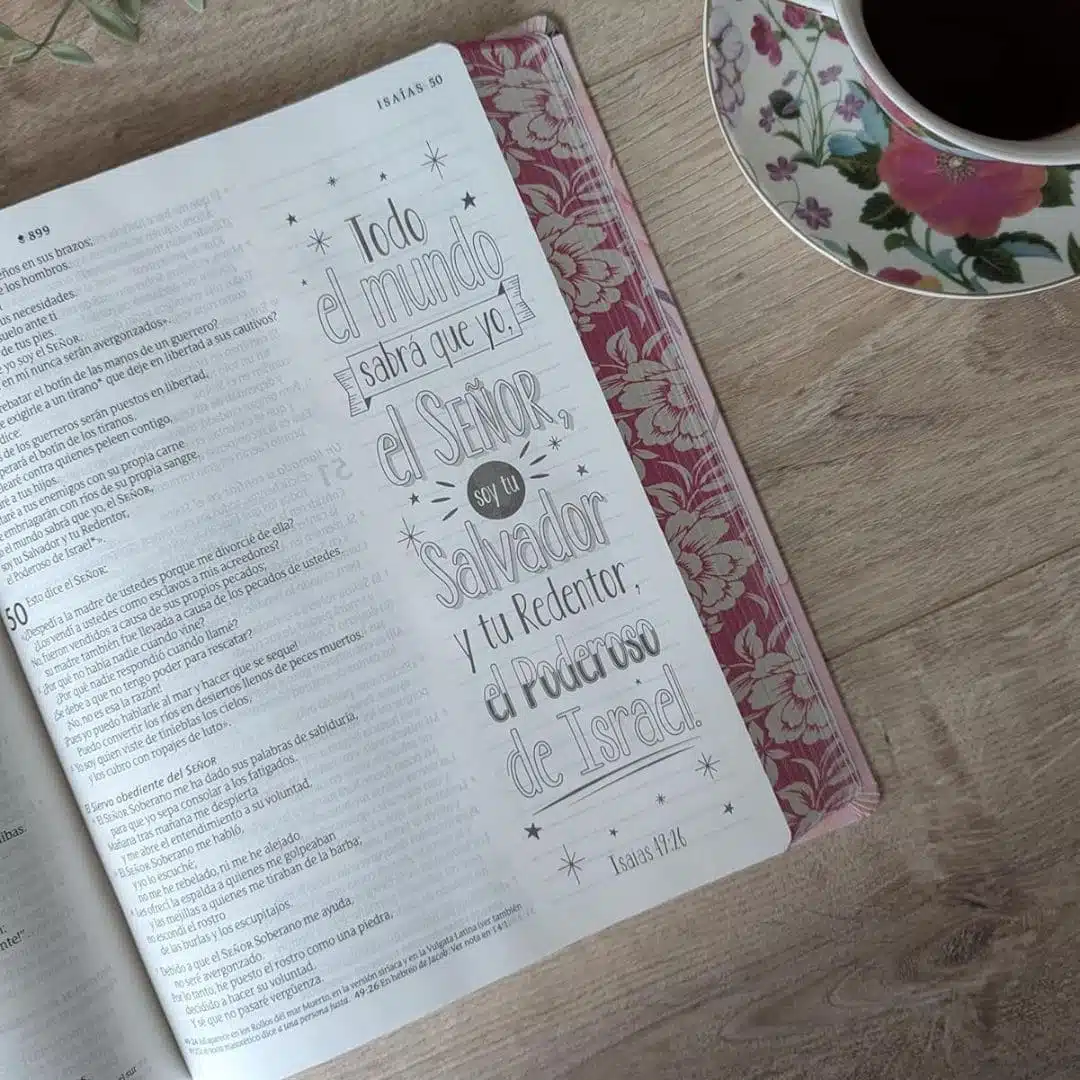 ISAÍAS 50
899
ños en sus brazos;
e los hombros.
us necesidades.
suelo ante ti
de tus pies.
yo soy el SEÑOR;
en mí nunca serán avergonzados».
rebatar el botín de las manos de un guerrero?
exigirle a un tirano* que deje en libertad a sus cautivos?
dice:
de los guerreros serán puestos en libertad,
perará el botín de los tiranos.
learé contra quienes peleen contigo,
ré a tus hijos.
taré a tus enemigos con su propia carne
embriagarán con ríos de su propia sangre,
o el mundo sabrá que yo, el SEÑOR,
soy tu Salvador y tu Redentor,
el Poderoso de Israel*».
50 Esto dice el SEÑOR:
«¿Despedí a la madre de ustedes porque me divorcié de ella?
¿Los vendí a ustedes como esclavos a mis acreedores?
No, fueron vendidos a causa de sus propios pecados;
su madre también fue llevada a causa de los pecados de ustedes.
¿Por qué no había nadie cuando vine?
¿Por qué nadie respondió cuando llamé?
¿Se debe a que no tengo poder para rescatar?
¡No, no es esa la razón!
¡Pues yo puedo hablarle al mar y hacer que se seque!
Puedo convertir los ríos en desiertos llenos de peces muertos.
Yo soy quien viste de tinieblas los cielos,
y los cubro con ropajes de luto».
El Siervo obediente del SEÑOR
El SEÑOR Soberano me ha dado sus palabras de sabiduría,
para que yo sepa consolar a los fatigados.
Mañana tras mañana me despierta
y me abre el entendimiento a su voluntad.
El SEÑOR Soberano me habló,
y yo lo escuché;
no me he rebelado, ni me he alejado.
Les ofrecí la espalda a quienes me golpeaban
y las mejillas a quienes me tiraban de la barba;
no escondí el rostro
de las burlas y los escupitajos.
Debido a que el SEÑOR Soberano me ayuda,
no seré avergonzado.
Por lo tanto, he puesto el rostro como una piedra,
decidido a hacer su voluntad.
Y sé que no pasaré vergüenza.
aparece en los Rollos del mar Muerto, en la versión siríaca y en la Vulgata Latina (ver también
el texto masorético dice a una persona justa. 49:26 En hebreo de Jacob. Ver nota en 14:1.
Todo
el mundo
sabrá que yo,
el SEÑOR,
soy tu
Salvador
y tu Redentor,
el Poderoso
de Israel.
Isaías 49:26